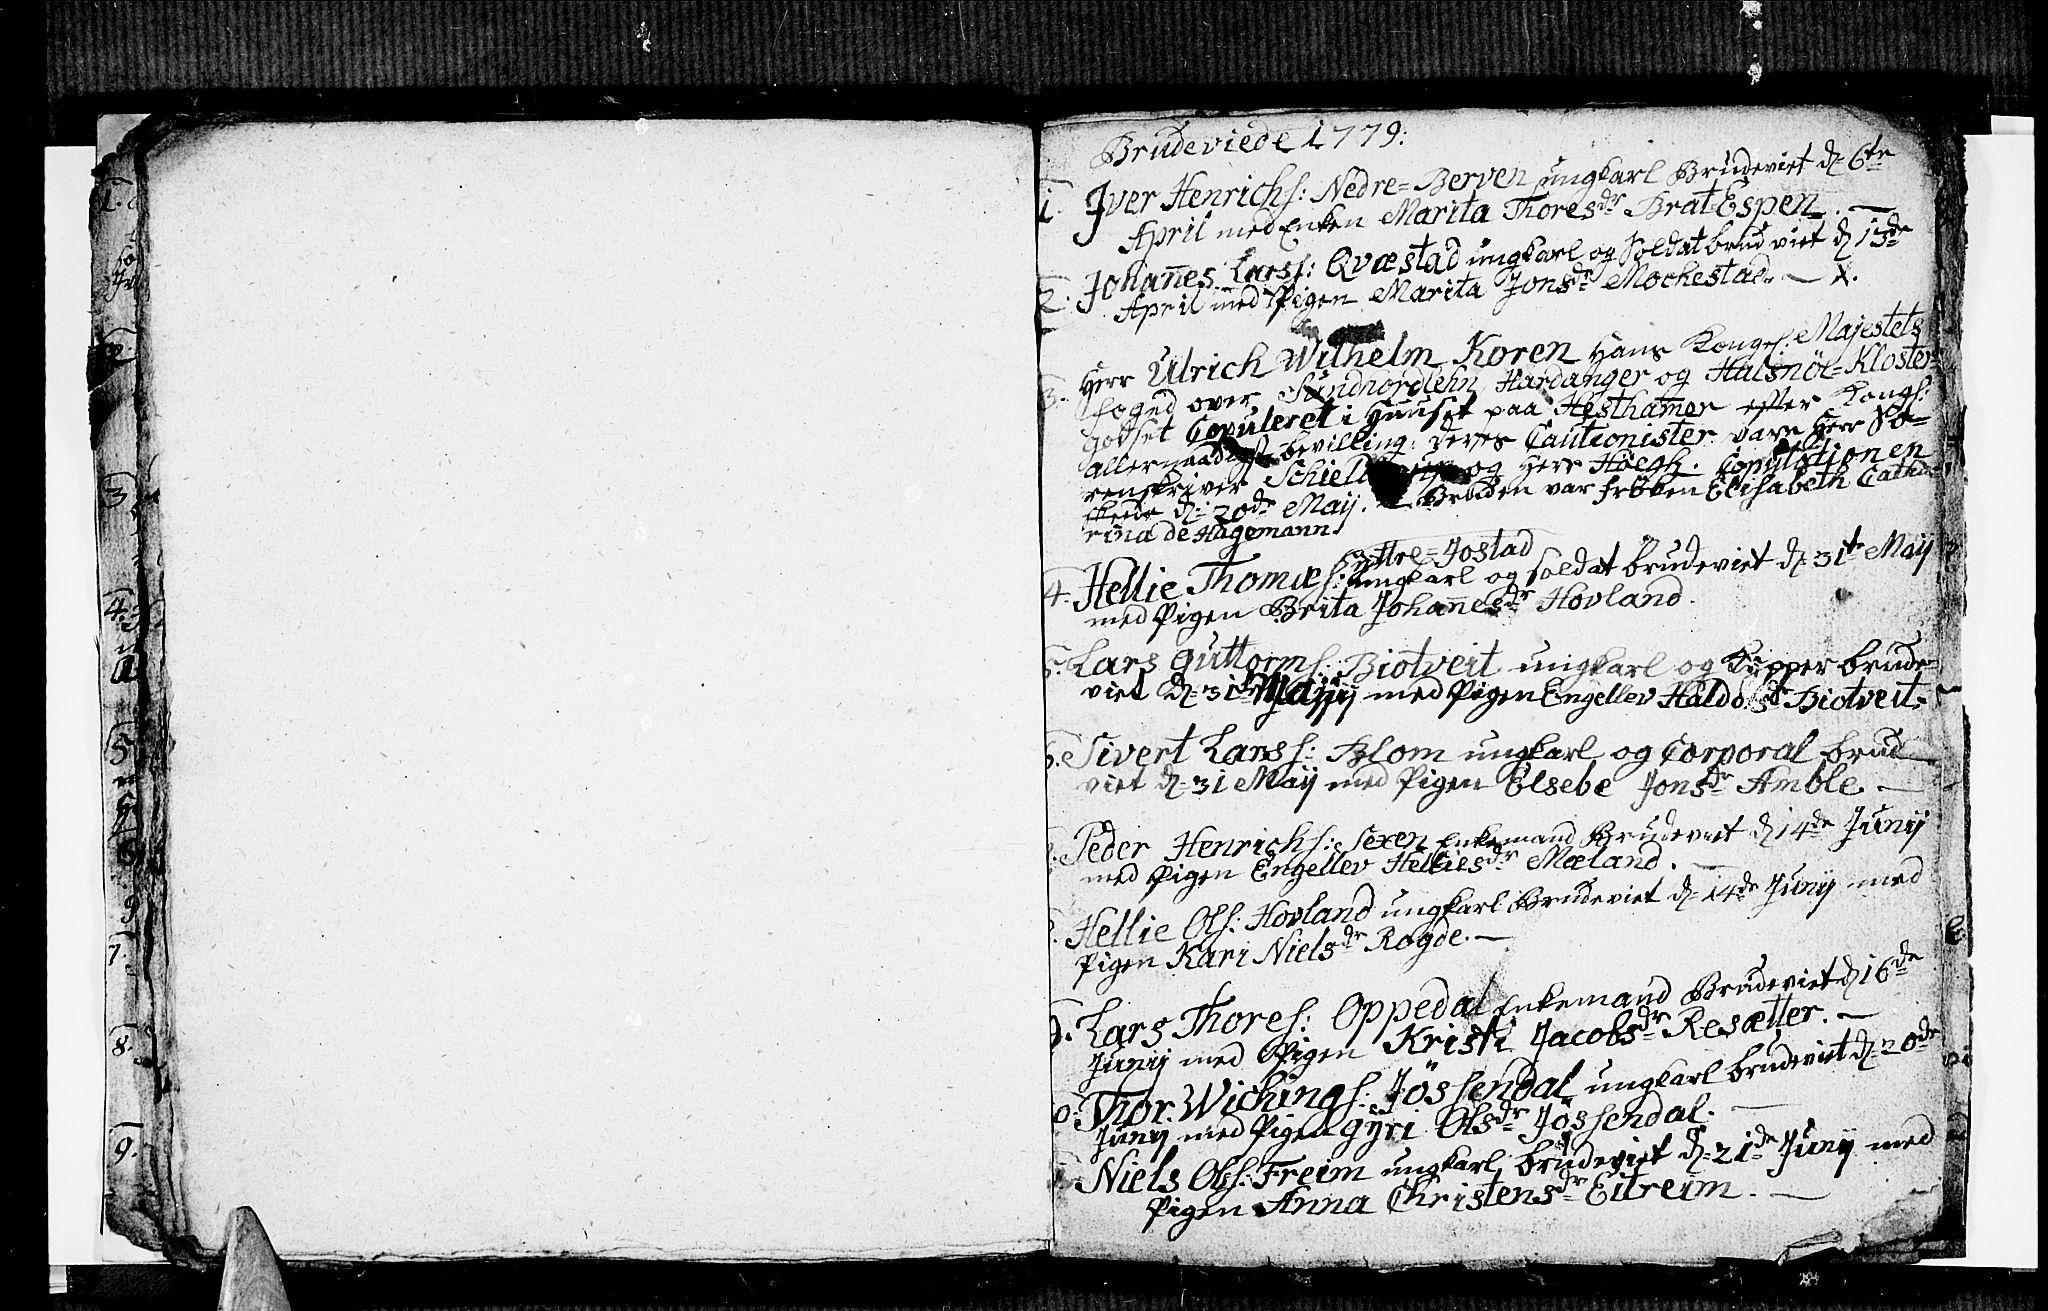 1.
2.
3
4.
5.
6
7.
8.
9.
Brudeviede 1779:
1. Iver Henrichs: Nedre=Berven ungkarl Brudeviet d= 6te
April med Enken Marita Thoresdr BratEspen. —
2. Johan̄es Larss: Qvæstad ungkarl og Soldat brudviet d 13de
April med Pigen Marita Jonsdr Mockestad. — x.
3. Herr Ulrich Wilhelm Koren Hans Kongel: Majestets
foged over Sundhordlehn, Hardanger og Halsnöe=Kloster=
godset Copuleret i Huuset paa Hesthamer efter Kongl:
allernaadigst bevilling. Deres Cautionister vare Herr So=
renskriver og Herr Höegh. Copulationen
skeede d: 20de Maij. — Bruden var fröken Elisabeth Catha=
rina de Hagemann
Yttre=Jostad
4. Hellie Thomæs: ungkarl og soldat brudeviet d= 31te Maij
med Pigen Brita Johan̄esdr Hovland.
5. Lars Guttorms: Biotveit ungkarl og Kupper brude=
viet d= 31te Maij med Pigen Engellev Haldorsdr Biotveit.
6. Sivert Larss: Blom ungkarl og Corporal brud
viet d= 31 Maij med Pigen Elsebe Jonsdr Amble —
Peder Henrichs: Sexen Enkemand Brudeviet d 14de Junij
med Pigen Engellev Helliesdr Mæland. —
Hellie Ols: Hovland ungkarl Brudeviet d= 14de Junij med
Pigen Kari Nielsdr Rogde. —
9. Lars Thores: Oppedal Enkemand Brudeviet d 16de
Junij med Pigen Kristi Jacobsdr Resætter. —
0. Thor. Wichings: Jössendal ungkarl brudeviet d= 20de
Junij med Pigen Gyri Olsdr Jössendal. —
Niels Ols: Freim ungkarl brudeviet d= 21de Junij med
Pigen Anna Christensdr Eitreim. —